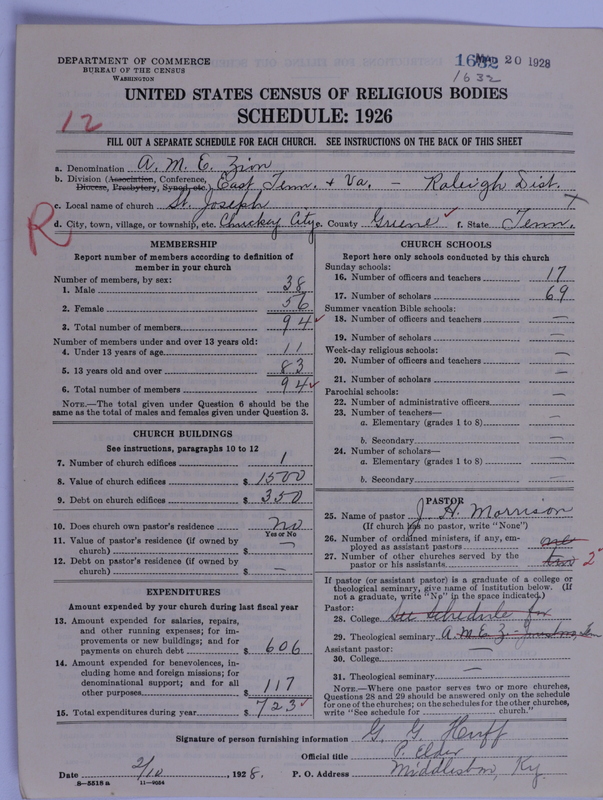 DEPARTMENT OF COMMERCE
BUREAU OF THE CENSUS
WASHINGTON
1632 20 1928
1632
UNITED STATES CENSUS OF RELIGIOUS BODIES
SCHEDULE: 1926
12
FILL OUT A SEPARATE SCHEDULE FOR EACH CHURCH. SEE INSTRUCTIONS ON THE BACK OF THIS SHEET
a. Denomination A. M. E. Zion
b. Division (Association, Conference, Diocese, Presbytery, Synod, etc.) East Tenn. + Va. - Raleigh Dist.
c. Local name of church St. Joseph
R
d. City, town, village, or township, etc. Chuckey City e. County Greene f. State Tenn.
MEMBERSHIP
Report number of members according to definition of
member in your church
Number of members, by sex:
1. Male 38
2. Female 56
3. Total number of members 94
Number of members under and over 13 years old:
4. Under 13 years of age 11
5. 13 years old and over 83
6. Total number of members 94
NOTE.—The total given under Question 6 should be the
same as the total of males and females given under Question 3.
CHURCH BUILDINGS
See instructions, paragraphs 10 to 12
7. Number of church edifices 1
8. Value of church edifices $ 1500
9. Debt on church edifices $ 350
10. Does church own pastor's residence no
Yes or No
11. Value of pastor's residence (if owned by
church) $ —
12. Debt on pastor's residence (if owned by
church) $ —
EXPENDITURES
Amount expended by your church during last fiscal year
13. Amount expended for salaries, repairs,
and other running expenses; for im-
provements or new buildings; and for
payments on church debt $ 606
14. Amount expended for benevolences, in-
cluding home and foreign missions; for
denominational support; and for all
other purposes $ 117
15. Total expenditures during year $ 723
CHURCH SCHOOLS
Report here only schools conducted by this church
Sunday schools:
16. Number of officers and teachers 17
17. Number of scholars 69
Summer vacation Bible schools:
18. Number of officers and teachers —
19. Number of scholars —
Week-day religious schools:
20. Number of officers and teachers —
21. Number of scholars —
Parochial schools:
22. Number of administrative officers —
23. Number of teachers—
a. Elementary (grades 1 to 8) —
b. Secondary —
24. Number of scholars—
a. Elementary (grades 1 to 8) —
b. Secondary —
PASTOR
25. Name of pastor J. H. Morrison
(If church has no pastor, write "None")
26. Number of ordained ministers, if any, em-
ployed as assistant pastors one
27. Number of other churches served by the
pastor or his assistants two 2
If pastor (or assistant pastor) is a graduate of a college or
theological seminary, give name of institution below. (If
not a graduate, write "No" in the space indicated.)
Pastor:
28. College See Schedule for
29. Theological seminary A. M. E. Z.
Assistant pastor:
30. College —
31. Theological seminary —
NOTE.—Where one pastor serves two or more churches,
Questions 28 and 29 should be answered only on the schedule
for one of the churches; on the schedules for the other churches,
write "See schedule for church."
Signature of person furnishing information G. G. Huff
Official title P. Elder
Date 2/10, 1928. P. O. Address Ky.
8—5518 a 11—9054